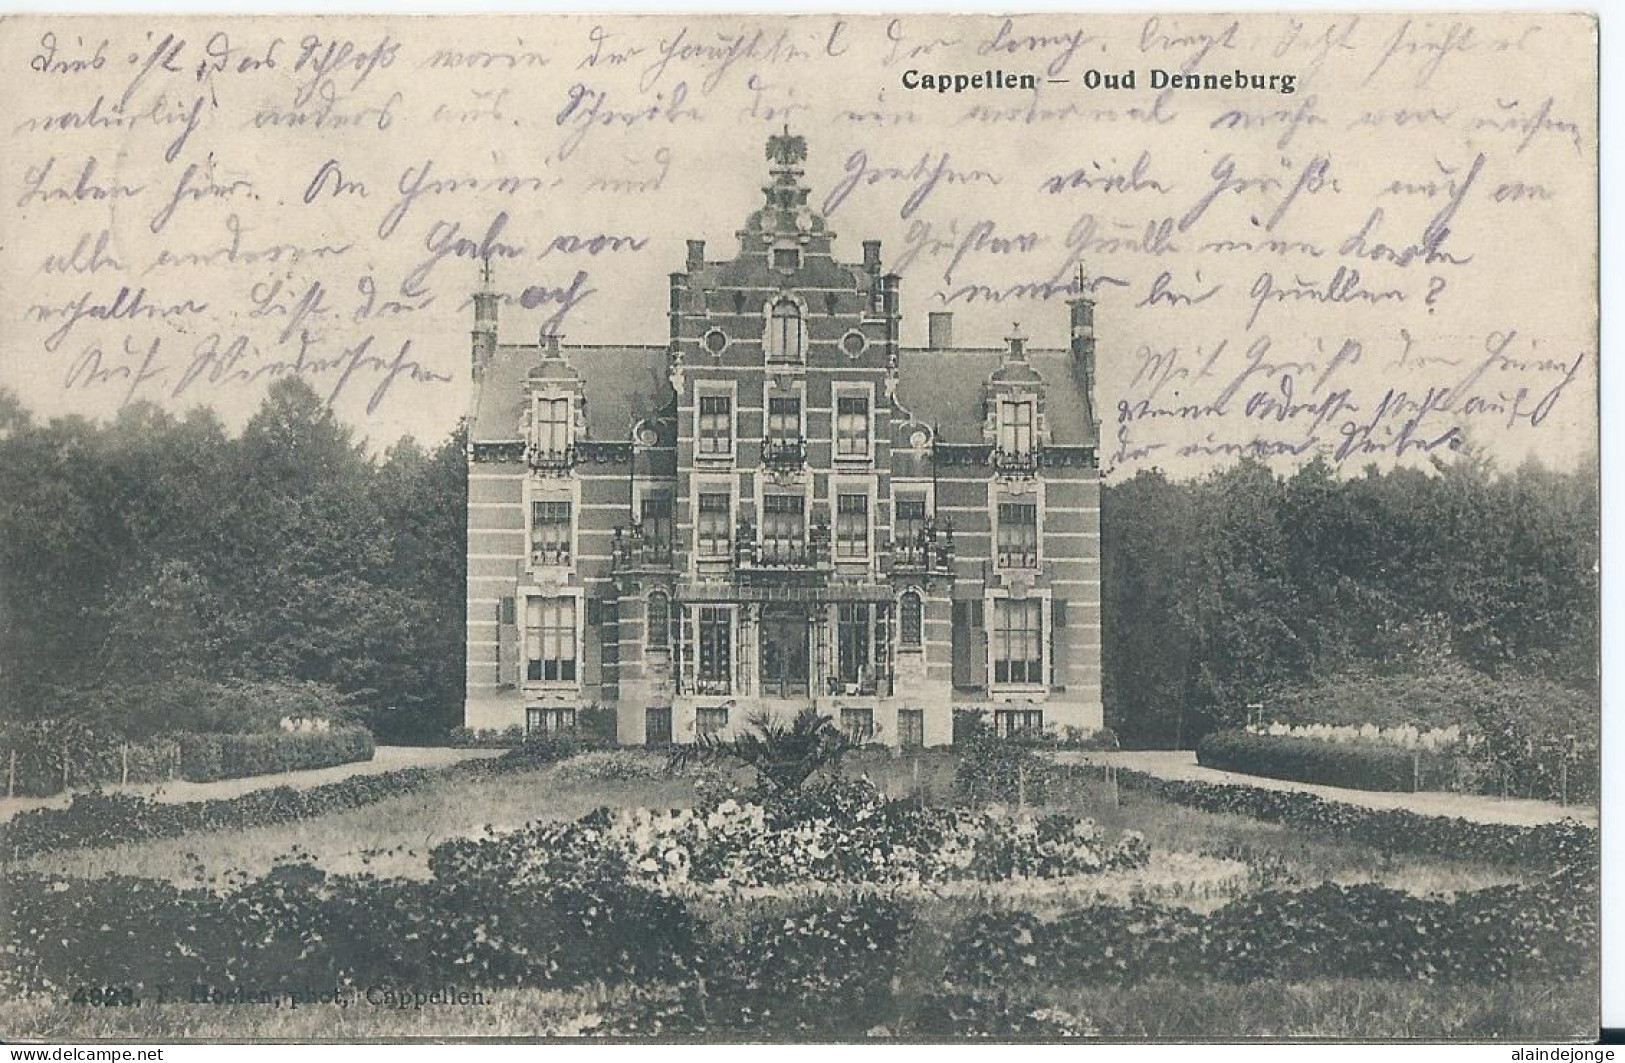 Dies ist das Schloß worin der Hauptteil der Komp. liegt. Jetzt sieht es
Cappellen — Oud Denneburg
natürlich anders aus. Schreibe Dir ein andermal mehr von unserm
Leben hier. An Heini und Gretchen viele Grüße auch an
alle anderen. Habe von Gustav Quelle eine Karte
erhalten. Bist Du noch immer bei Quellen?
Auf Wiedersehen
Mit Gruß Dein Heinrich
Meine Adresse steht auf
der einen Seite.
4923. F. Hoelen, phot, Cappellen.
delcampe.net
alaindejonge